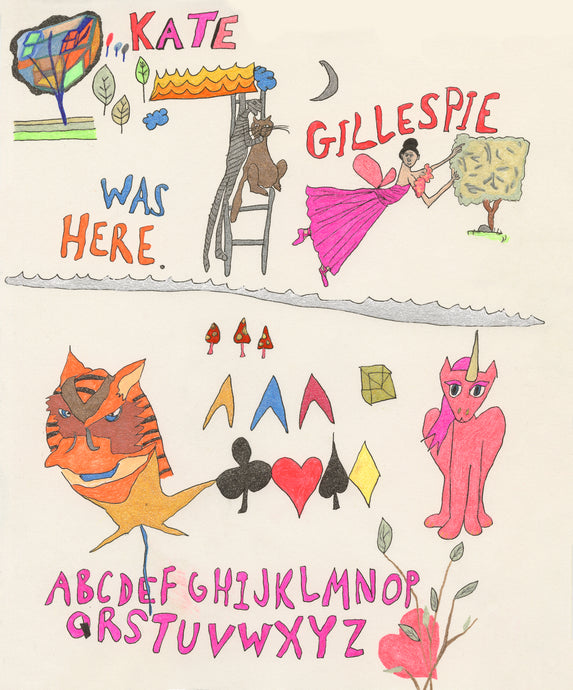 KATE
GILLESPIE
WAS
HERE.
ABCDEFGHIJKLMNOP
QRSTUVWXYZ